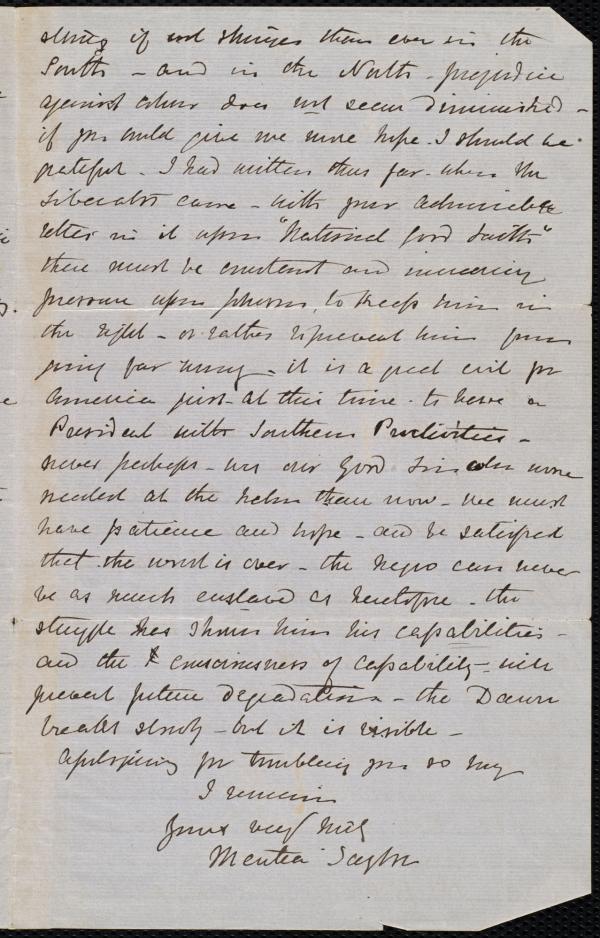 strong if not stronger than ever in the
South - and in the North - prejudice
against colour does not seem diminished -
if you could give me more hope. I should be
grateful - I had written thus far - when the
Liberator came - with your admirable
letter in it upon "National Good Faith"
there must be constant and increasing
pressure upon Johnson, to keep him in
the right - or rather to prevent him from
going far wrong - it is a great evil for
America just at this time - to have a
President with Southern Proclivities -
never perhaps - was our good Lincoln more
needed at the helm than now - we must
have patience and hope - and be satisfied
that the worst is over - the Negro can never
be as much enslaved as heretofore - the
struggle has shown him his capabilities -
and the consciousness of capability - will
prevent future degradation - the Dawn
breaks slowly - but it is visible -
Apologising for troubling you so long
I remain
Yours very truly
Mentia Taylor